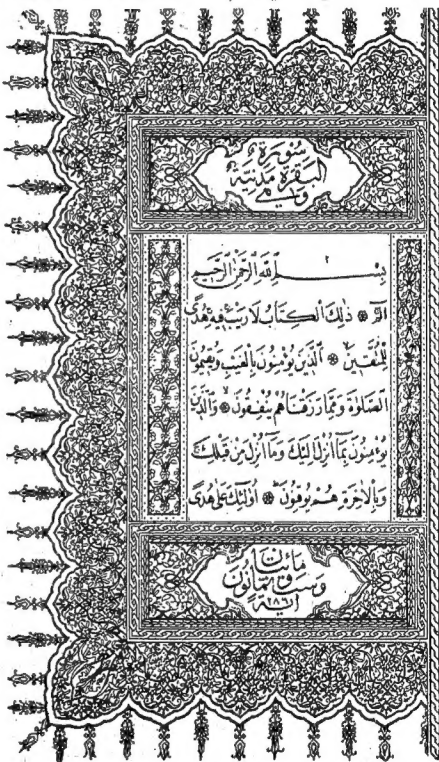 سورة
البقرة مدنية
وهي
٢
بسم الله الرحمن الرحيم
الم ۞ ذٰلِكَ الْكِتَابُ لَا رَيْبَ فِيهِ هُدًى
لِلْمُتَّقِينَ ۞ الَّذِينَ يُؤْمِنُونَ بِالْغَيْبِ وَيُقِيمُونَ
الصَّلٰوةَ وَمِمَّا رَزَقْنَاهُمْ يُنْفِقُونَ ۞ وَالَّذِينَ
يُؤْمِنُونَ بِمَا أُنْزِلَ إِلَيْكَ وَمَا أُنْزِلَ مِنْ قَبْلِكَ
وَبِالْآخِرَةِ هُمْ يُوقِنُونَ ۞ أُولٰئِكَ عَلٰى هُدًى
مائتان
وست وثمانون
آية ٢٨٦